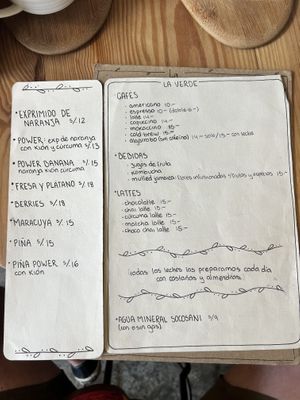 • EXPRIMIDO DE
NARANJA S/.12
• POWER: exp de naranja
con kión y cúrcuma s/.13
• POWER BANANA s/.15
naranja kión curcuma
• FRESA Y PLATANO s/.18
• BERRIES s/.18
• MARACUYA s/.15
• PIÑA s/.15
• PIÑA POWER s/.16
con kión
LA VERDE
CAFES
- americano 10.-
- espresso 10.- (doble
- latte 14.-
- capuccino 14.-
- mokaccino 15.-
- cold brew 15.-
- algarrobo (sin cafeína) 14.- solo/15.- con leche
• BEBIDAS
- jugos de fruta
- kombucha
- muffled jamaica
15.-
• LATTES
- chocolatte 15.-
- chai latte 15.-
- cúrcuma latte 15.-
- matcha latte 15.-
- choco chai latte 15.-
todas las leches las preparamos cada día
con castañas y almendras.
• AGUA MINERAL SOCOSANI s/9
(con o sin gas)